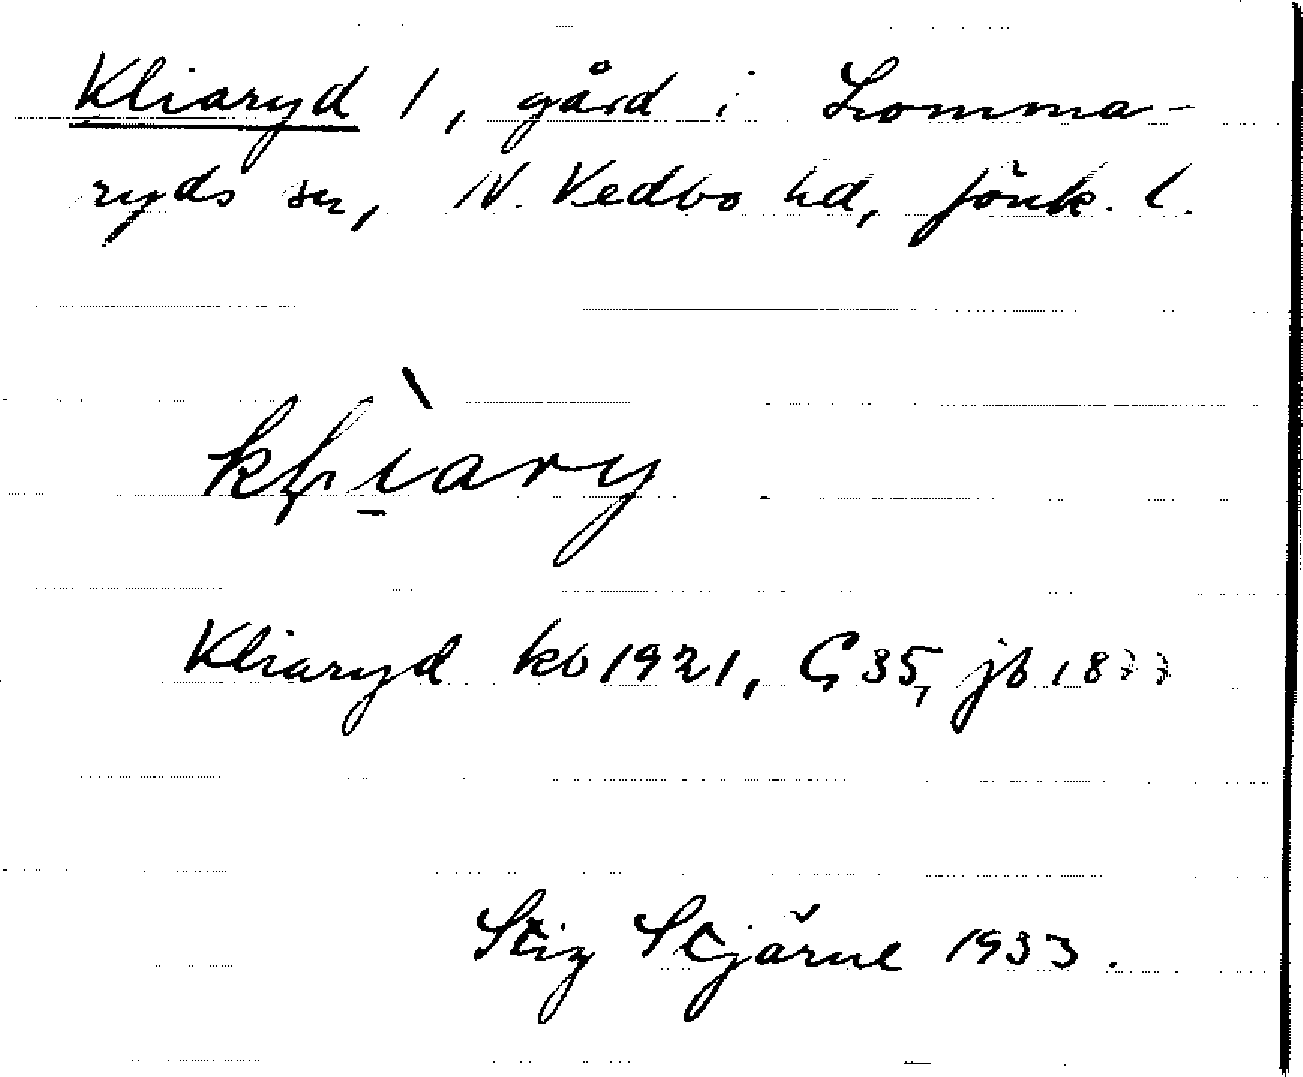 Kliaryd 1, gård i Lomma-
ryds sn, N. Vedbo hd, Jönk. l.
Kliaryd kb 1921, G 35, jb 1877
Stig Stjärne 1933.